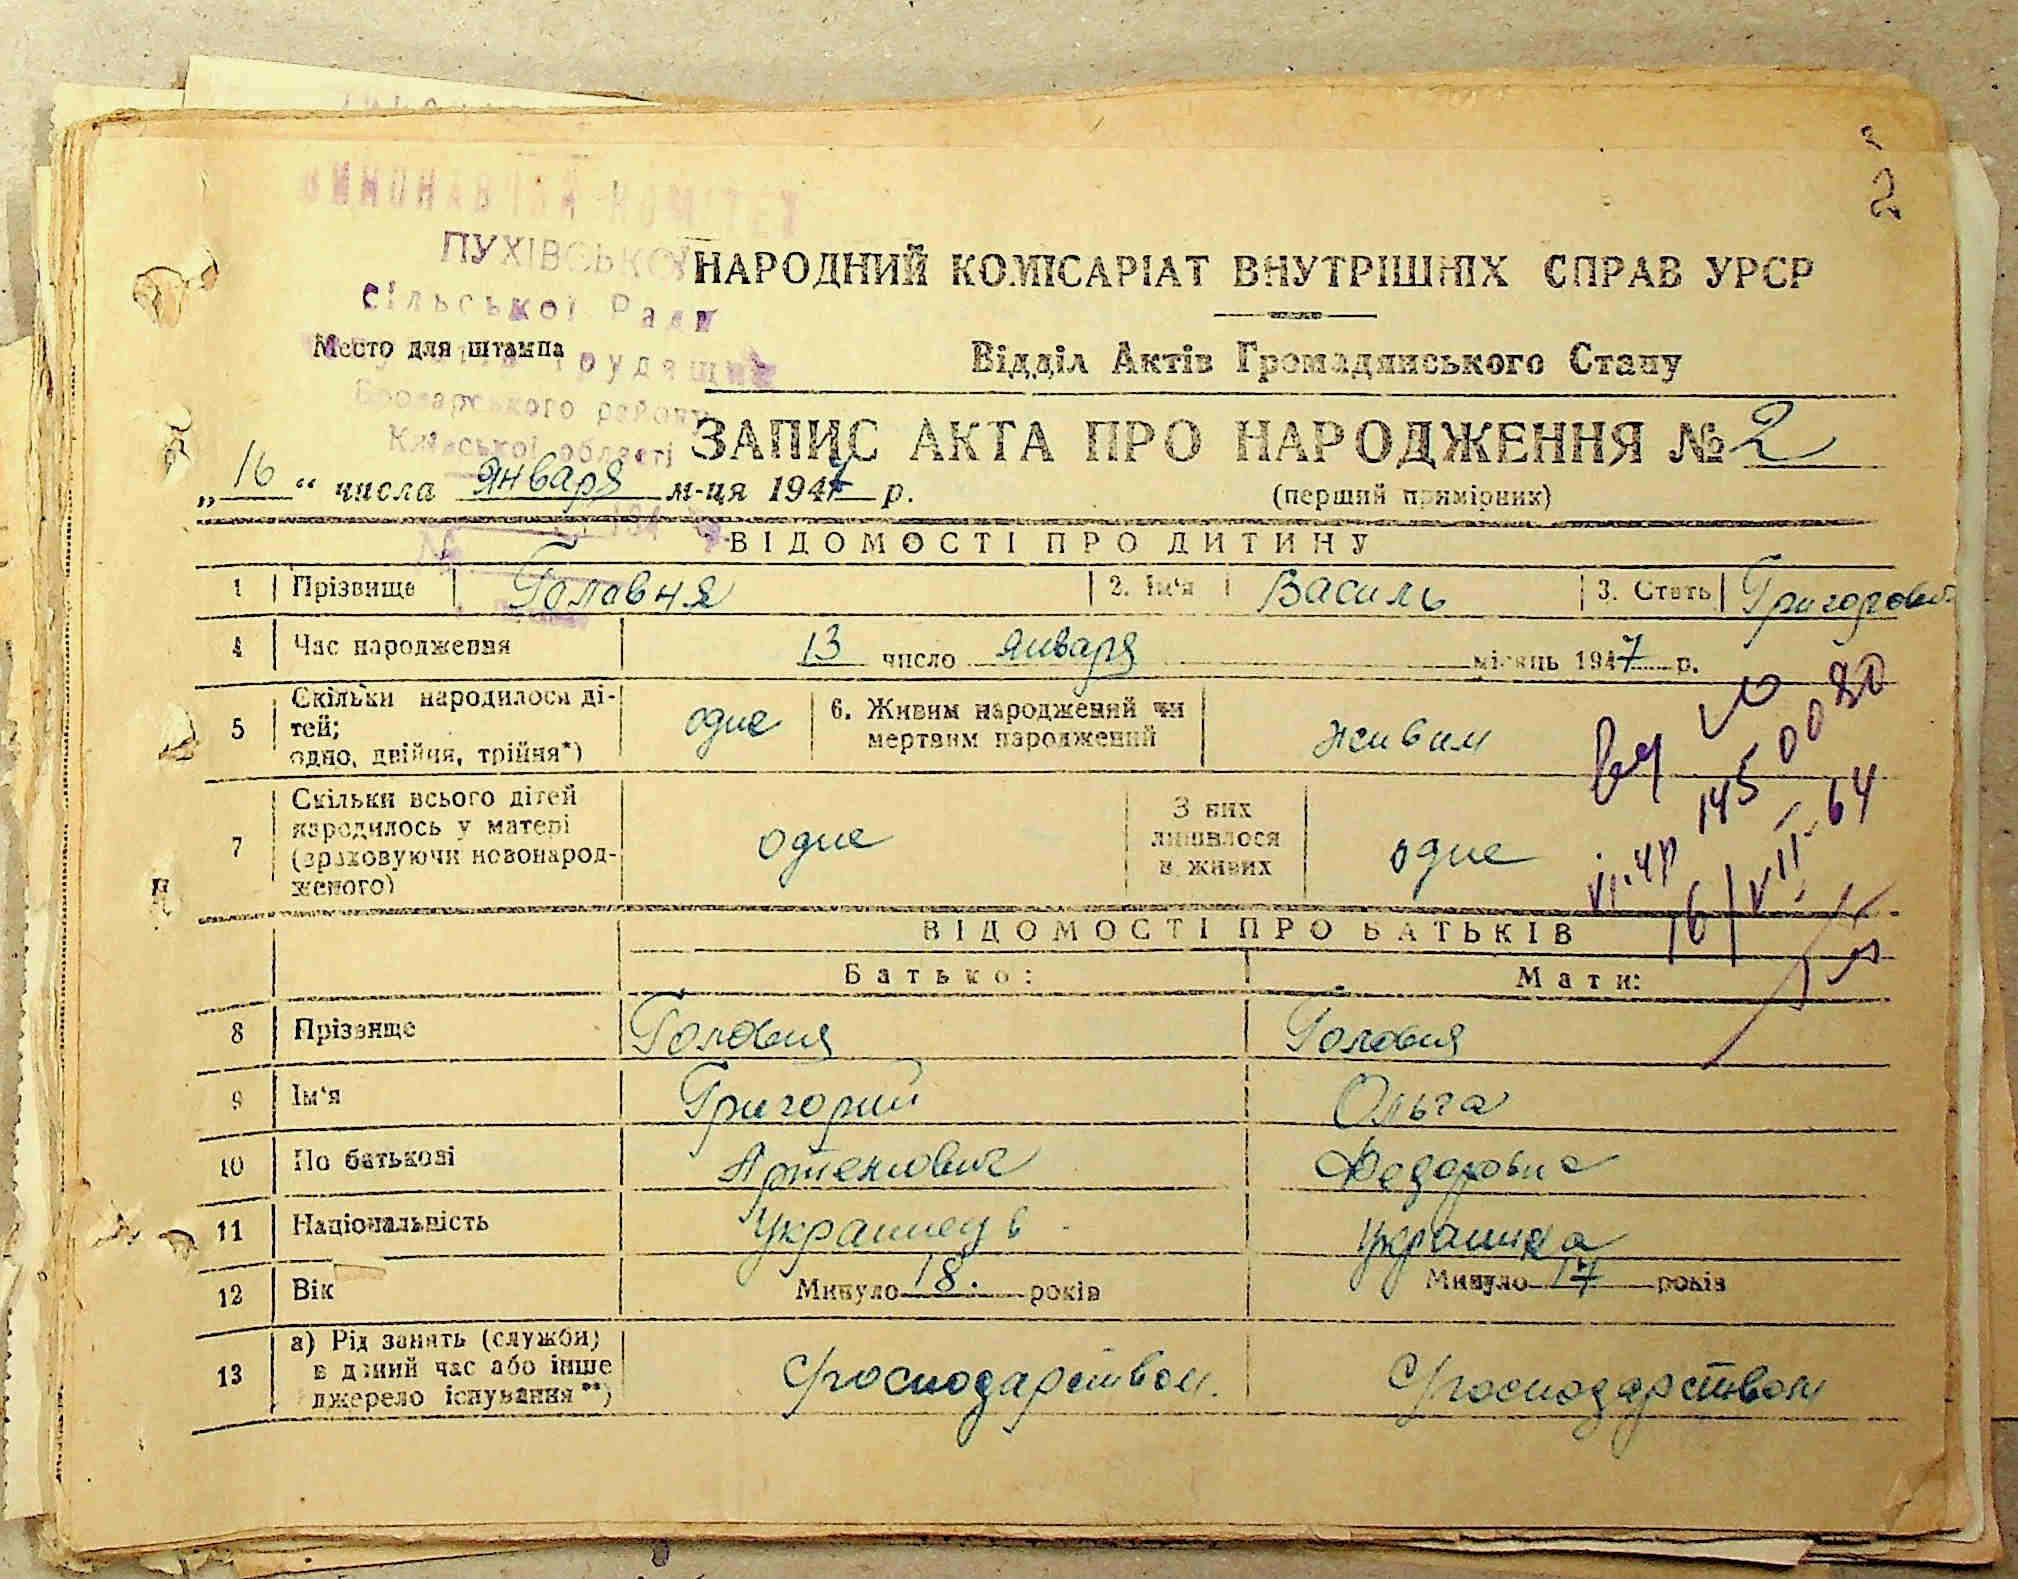 2
ВИКОНАВЧИЙ КОМІТЕТ
ПУХІВСЬКОЇ
сільської Ради
трудящих
Броварського району
Київської області
НАРОДНИЙ КОМІСАРІАТ ВНУТРІШНІХ СПРАВ УРСР
Место для штампа
Відділ Актів Громадянського Стану
ЗАПИС АКТА ПРО НАРОДЖЕННЯ № 2
„16“ числа января м-ця 1947 р.
(перший примірник)
ВІДОМОСТІ ПРО ДИТИНУ
1 Прізвище Головня 2. Ім'я Василь 3. Стать Григорович
4 Час народження 13 число января місяць 1947 р.
5 Скільки народилося ді-
тей;
одно, двійня, трійня*) одне 6. Живим народжений чи
мертвим народжений живим
7 Скільки всього дітей
народилось у матері
(враховуючи новонарод-
женого) одне З них
лишилося
в живих одне
145 0080
16/VII-64
ВІДОМОСТІ ПРО БАТЬКІВ
Батько: Мати:
8 Прізвище Головня Головня
9 Ім'я Григорий Ольга
10 По батькові Артемович Федоровна
11 Національність Украинець Украинка
12 Вік Минуло 18. років Минуло 17 років
13 а) Рід занять (служби)
в даний час або інше
джерело існування**) Господарством. Господарством